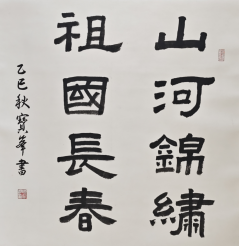 山河錦繡
祖國長春
乙巳秋寶華書